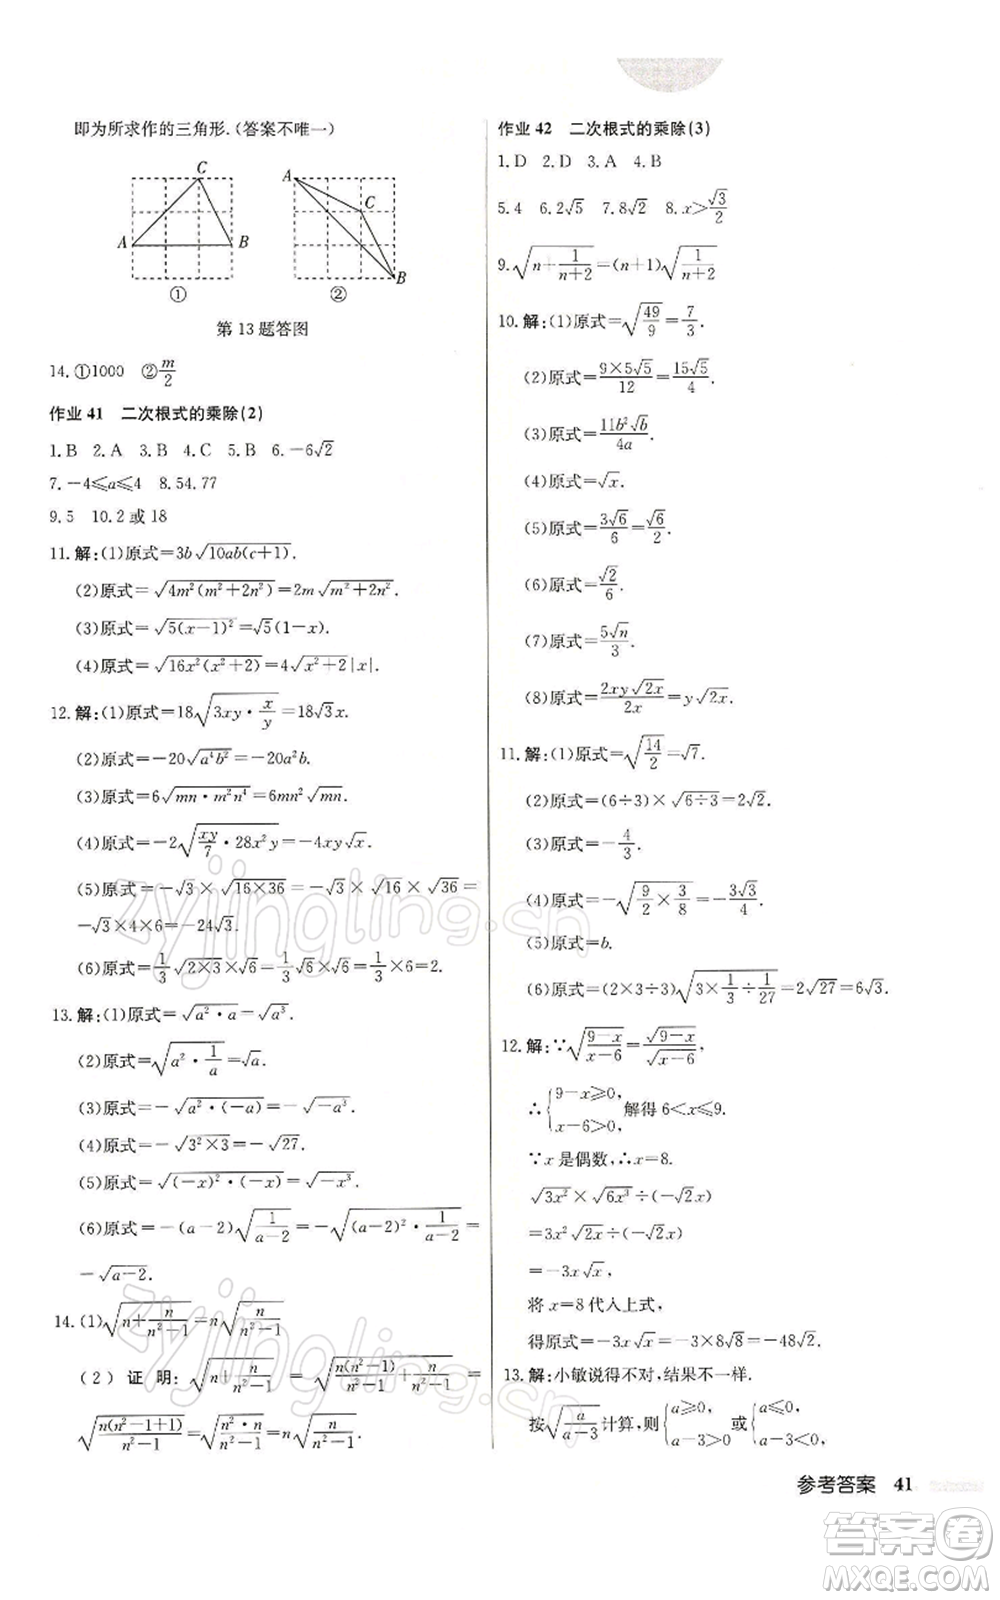 即为所求作的三角形.(答案不唯一)
A B C ①
A B C ②
第13题答图
14.①1000 ②m/2
作业 41 二次根式的乘除(2)
1.B 2.A 3.B 4.C 5.B 6.－6√2
7.－4≤a≤4 8.54.77
9.5 10.2 或 18
11.解:(1)原式＝3b√(10ab(c＋1)).
(2)原式＝√(4m²(m²＋2n²))＝2m√(m²＋2n²).
(3)原式＝√(5(x－1)²)＝√5(1－x).
(4)原式＝√(16x²(x²＋2))＝4√(x²＋2)|x|.
12.解:(1)原式＝18√(3xy·x/y)＝18√3x.
(2)原式＝－20√(a⁴b²)＝－20a²b.
(3)原式＝6√(mn·m²n⁴)＝6mn²√(mn).
(4)原式＝－2√(xy/7·28x²y)＝－4xy√x.
(5)原式＝－√3×√(16×36)＝－√3×√16×√36＝
－√3×4×6＝－24√3.
(6)原式＝1/3√(2×3×6)＝1/3√6×√6＝2.
13.解:(1)原式＝√(a²·a)＝√(a³).
(2)原式＝√(a²·1/a)＝√a.
(3)原式＝－√(a²·(－a))＝－√(－a³).
(4)原式＝－√(3²×3)＝－√27.
(5)原式＝√((－x)²·(－x))＝√(－x³).
(6)原式＝－(a－2)√(1/(a－2))＝－√((a－2)²·1/(a－2))＝
－√(a－2).
14.(1)√(n＋n/(n²－1))＝n√(n/(n²－1))
(2) 证 明:√(n＋n/(n²－1)) ＝ √(n(n²－1)/(n²－1)＋n/(n²－1)) ＝
√(n(n²－1＋1)/(n²－1))＝√(n²·n/(n²－1))＝n√(n/(n²－1)).
作业 42 二次根式的乘除(3)
1.D 2.D 3.A 4.B
5.4 6.2√5 7.8√2 8.x>√3/2
9.√(n＋1/(n＋2))＝(n＋1)√(1/(n＋2))
10.解:(1)原式＝√(49/9)＝7/3.
(2)原式＝(9×5√5)/12＝15√5/4.
(3)原式＝11b²√b/4a.
(4)原式＝√x.
(5)原式＝3√6/6＝√6/2.
(6)原式＝√2/6.
(7)原式＝5√n/3.
(8)原式＝2xy√(2x)/2x＝y√(2x).
11.解:(1)原式＝√(14/2)＝√7.
(2)原式＝(6÷3)×√(6÷3)＝2√2.
(3)原式＝－4/3.
(4)原式＝－√(9/2×3/8)＝－3√3/4.
(5)原式＝b.
(6)原式＝(2×3÷3)√(3×1/3÷1/27)＝2√27＝6√3.
12.解:∵√((9－x)/(x－6))＝√(9－x)/√(x－6),
∴{9－x≥0, x－6>0, 解得 6<x≤9.
∵x 是偶数,∴x＝8.
√(3x²)×√(6x³)÷(－√(2x²))
＝3x²√(2x)÷(－√2x)
＝－3x√x,
将 x＝8 代入上式,
得原式＝－3x√x＝－3×8√8＝－48√2.
13.解:小敏说得不对,结果不一样.
按√(a/(a－3))计算,则{a≥0, a－3>0 或{a≤0, a－3<0,
参考答案 41
zyjingling.cn
zyjingling.cn
答案卷
MXQE.COM